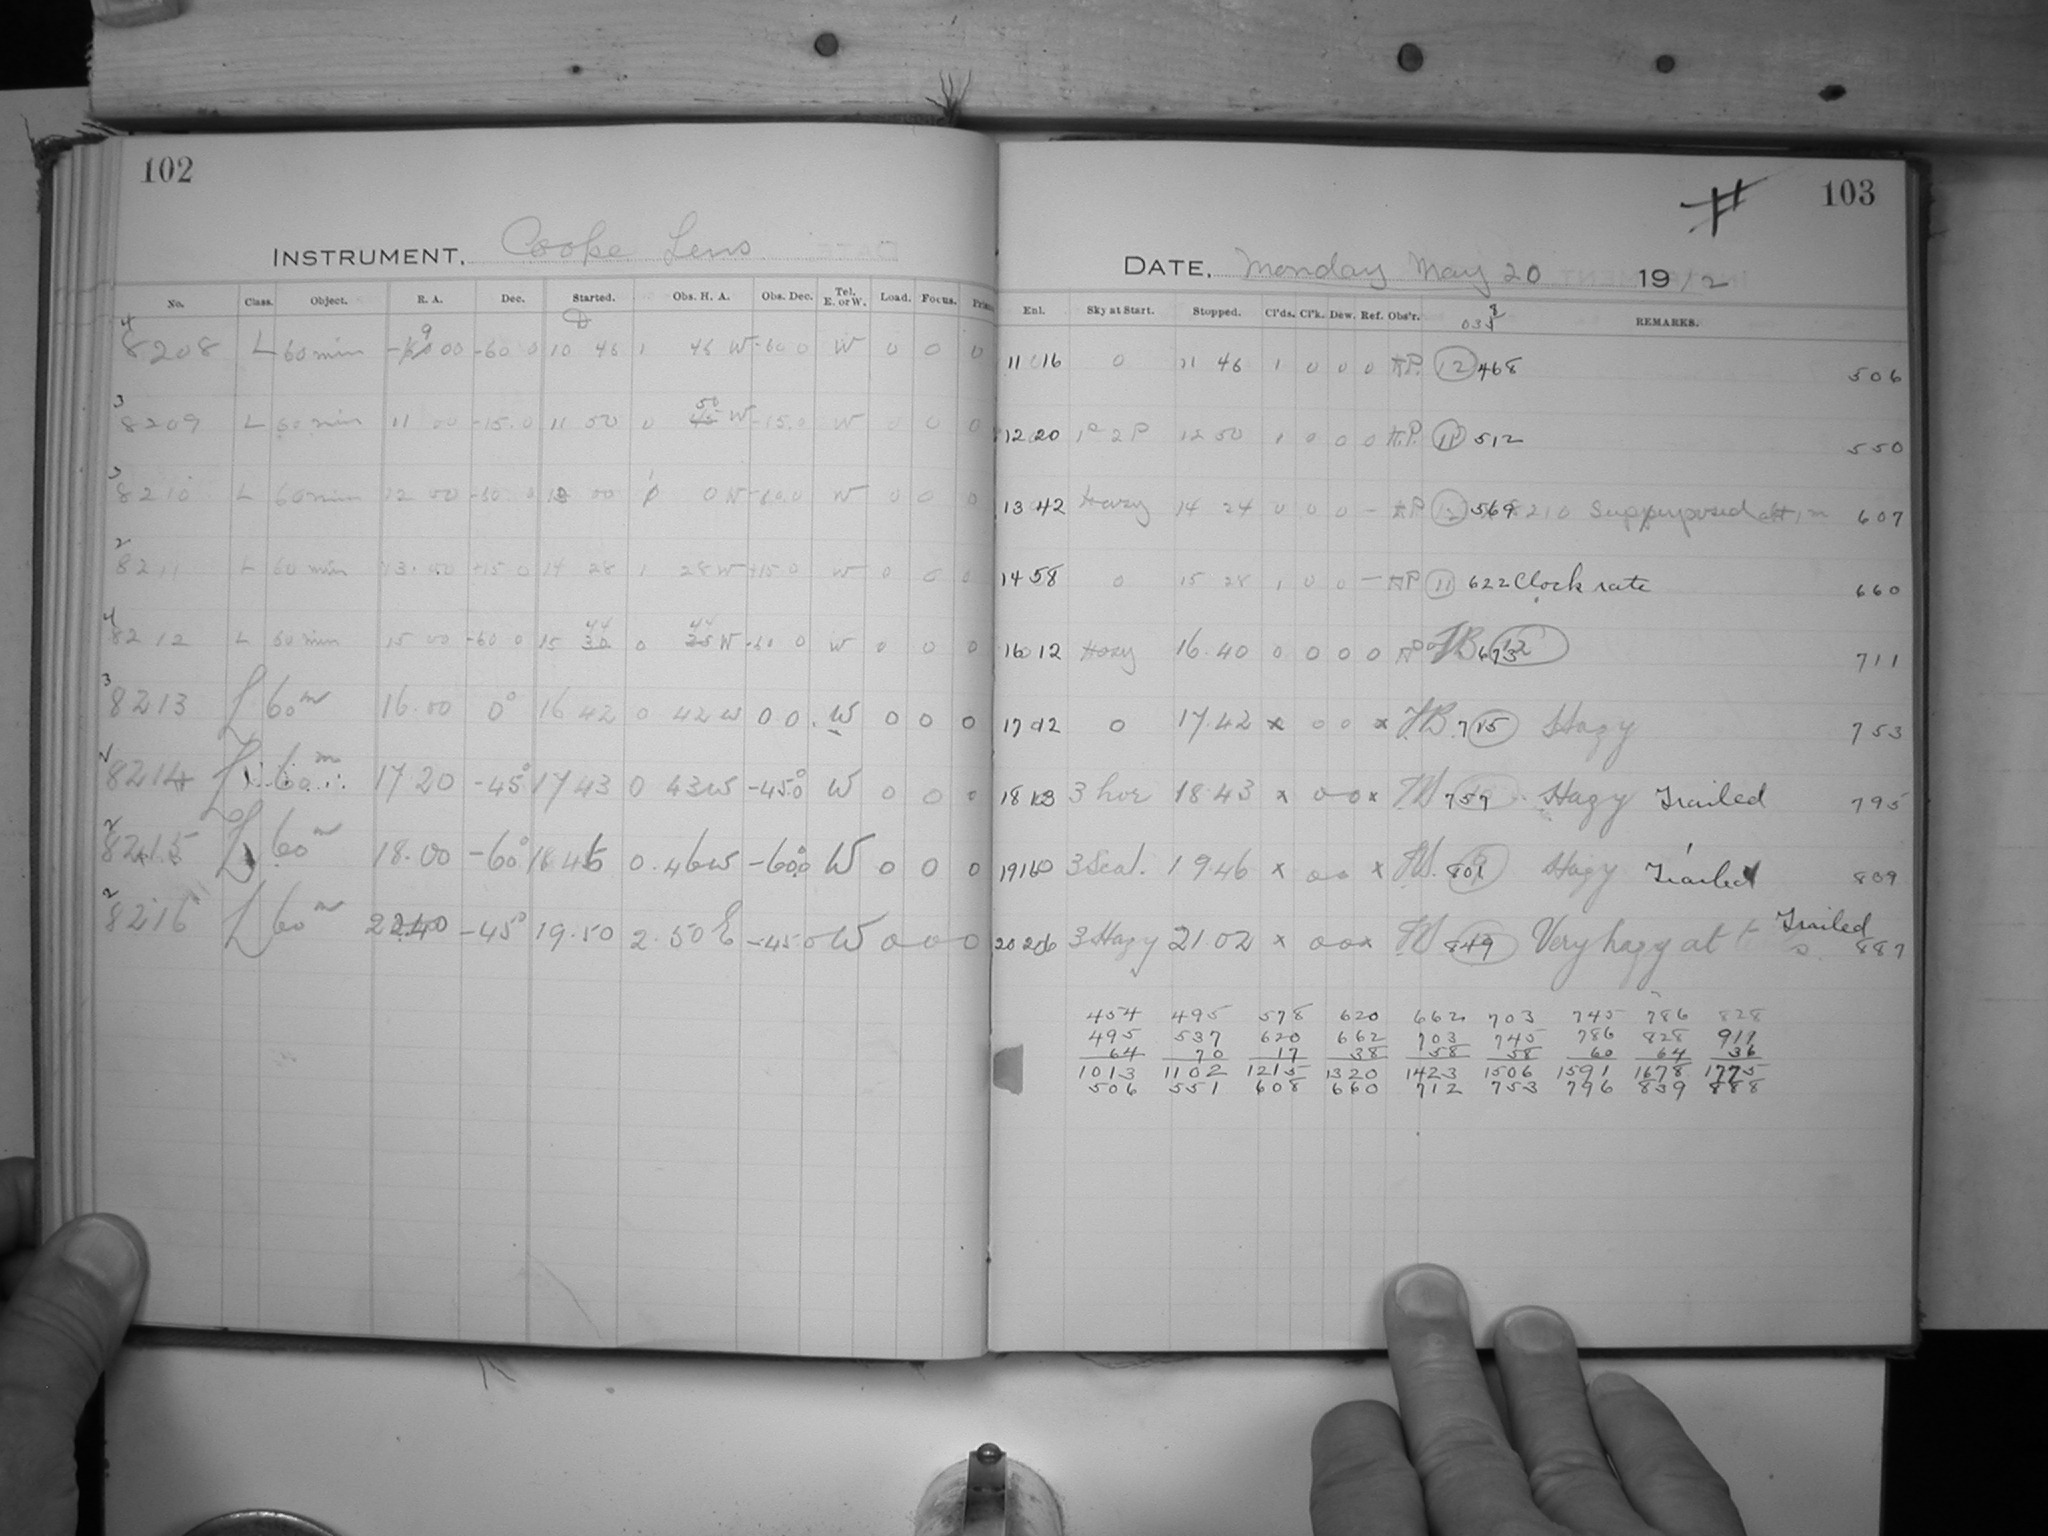 102
INSTRUMENT. Cooke Lens
No. Class. Object. R. A. Dec. Started. Obs. H. A. Obs. Dec. Tel. E. or W. Load. Focus.
8208 L 60 min 9 00 -60 0 10 46 1 46 W -60 0 W 0 0 0
8209 L 60 min 11 00 -15.0 11 50 0 50 W -15.0 W 0 0 0
8210 L 60 min 12 00 -60 0 13 00 1 0 W -60.0 W 0 0 0
8211 L 60 min 13.00 +15 0 14 28 1 28 W +15 0 W 0 0 0
8212 L 60 min 15 00 -60 0 15 44 0 44 W -60 0 W 0 0 0
8213 L 60m 16.00 0° 16 42 0 42 W 0 0. W 0 0 0
8214 L 60m 17 20 -45° 17 43 0 43 W -45°0 W 0 0 0
8215 L 60m 18.00 -60° 18 46 0.46 W -60°0 W 0 0 0
8216 L 60m -45° 19.50 2.50 E -45 0 W 0 0 0
103
DATE. Monday May 20 1912
Enl. Sky at Start. Stopped. Cl'ds. Cl'k. Dew. Ref. Obs'r. REMARKS.
11 16 0 11 46 1 0 0 0 HP. 12 468 506
12 20 12 50 1 0 0 0 H.P. 11 512 550
13 42 Hazy 14 24 0 0 0 - HP 12 569 8210 Supperposed 607
14 58 0 15 28 1 0 0 - HP 11 622 Clock rate 660
16 12 Hazy 16.40 0 0 0 0 12 673 711
17 12 0 17.42 x 0 0 x 715 Hazy 753
18 13 3 hor 18.43 x 0 0 x 757 Hazy Trailed 795
19 16 3 Scat. 19.46 x 0 0 x 801 Hazy Trailed 809
20 26 3 Hazy 21.02 x 0 0 x 849 Very hazy at Trailed 887
454 495 578 620 662 703 745 786 828
495 537 620 662 703 745 786 828 911
64 70 17 38 58 58 60 64 36
1013 1102 1215 1320 1423 1506 1591 1678 1775
506 551 608 660 712 753 796 839 888